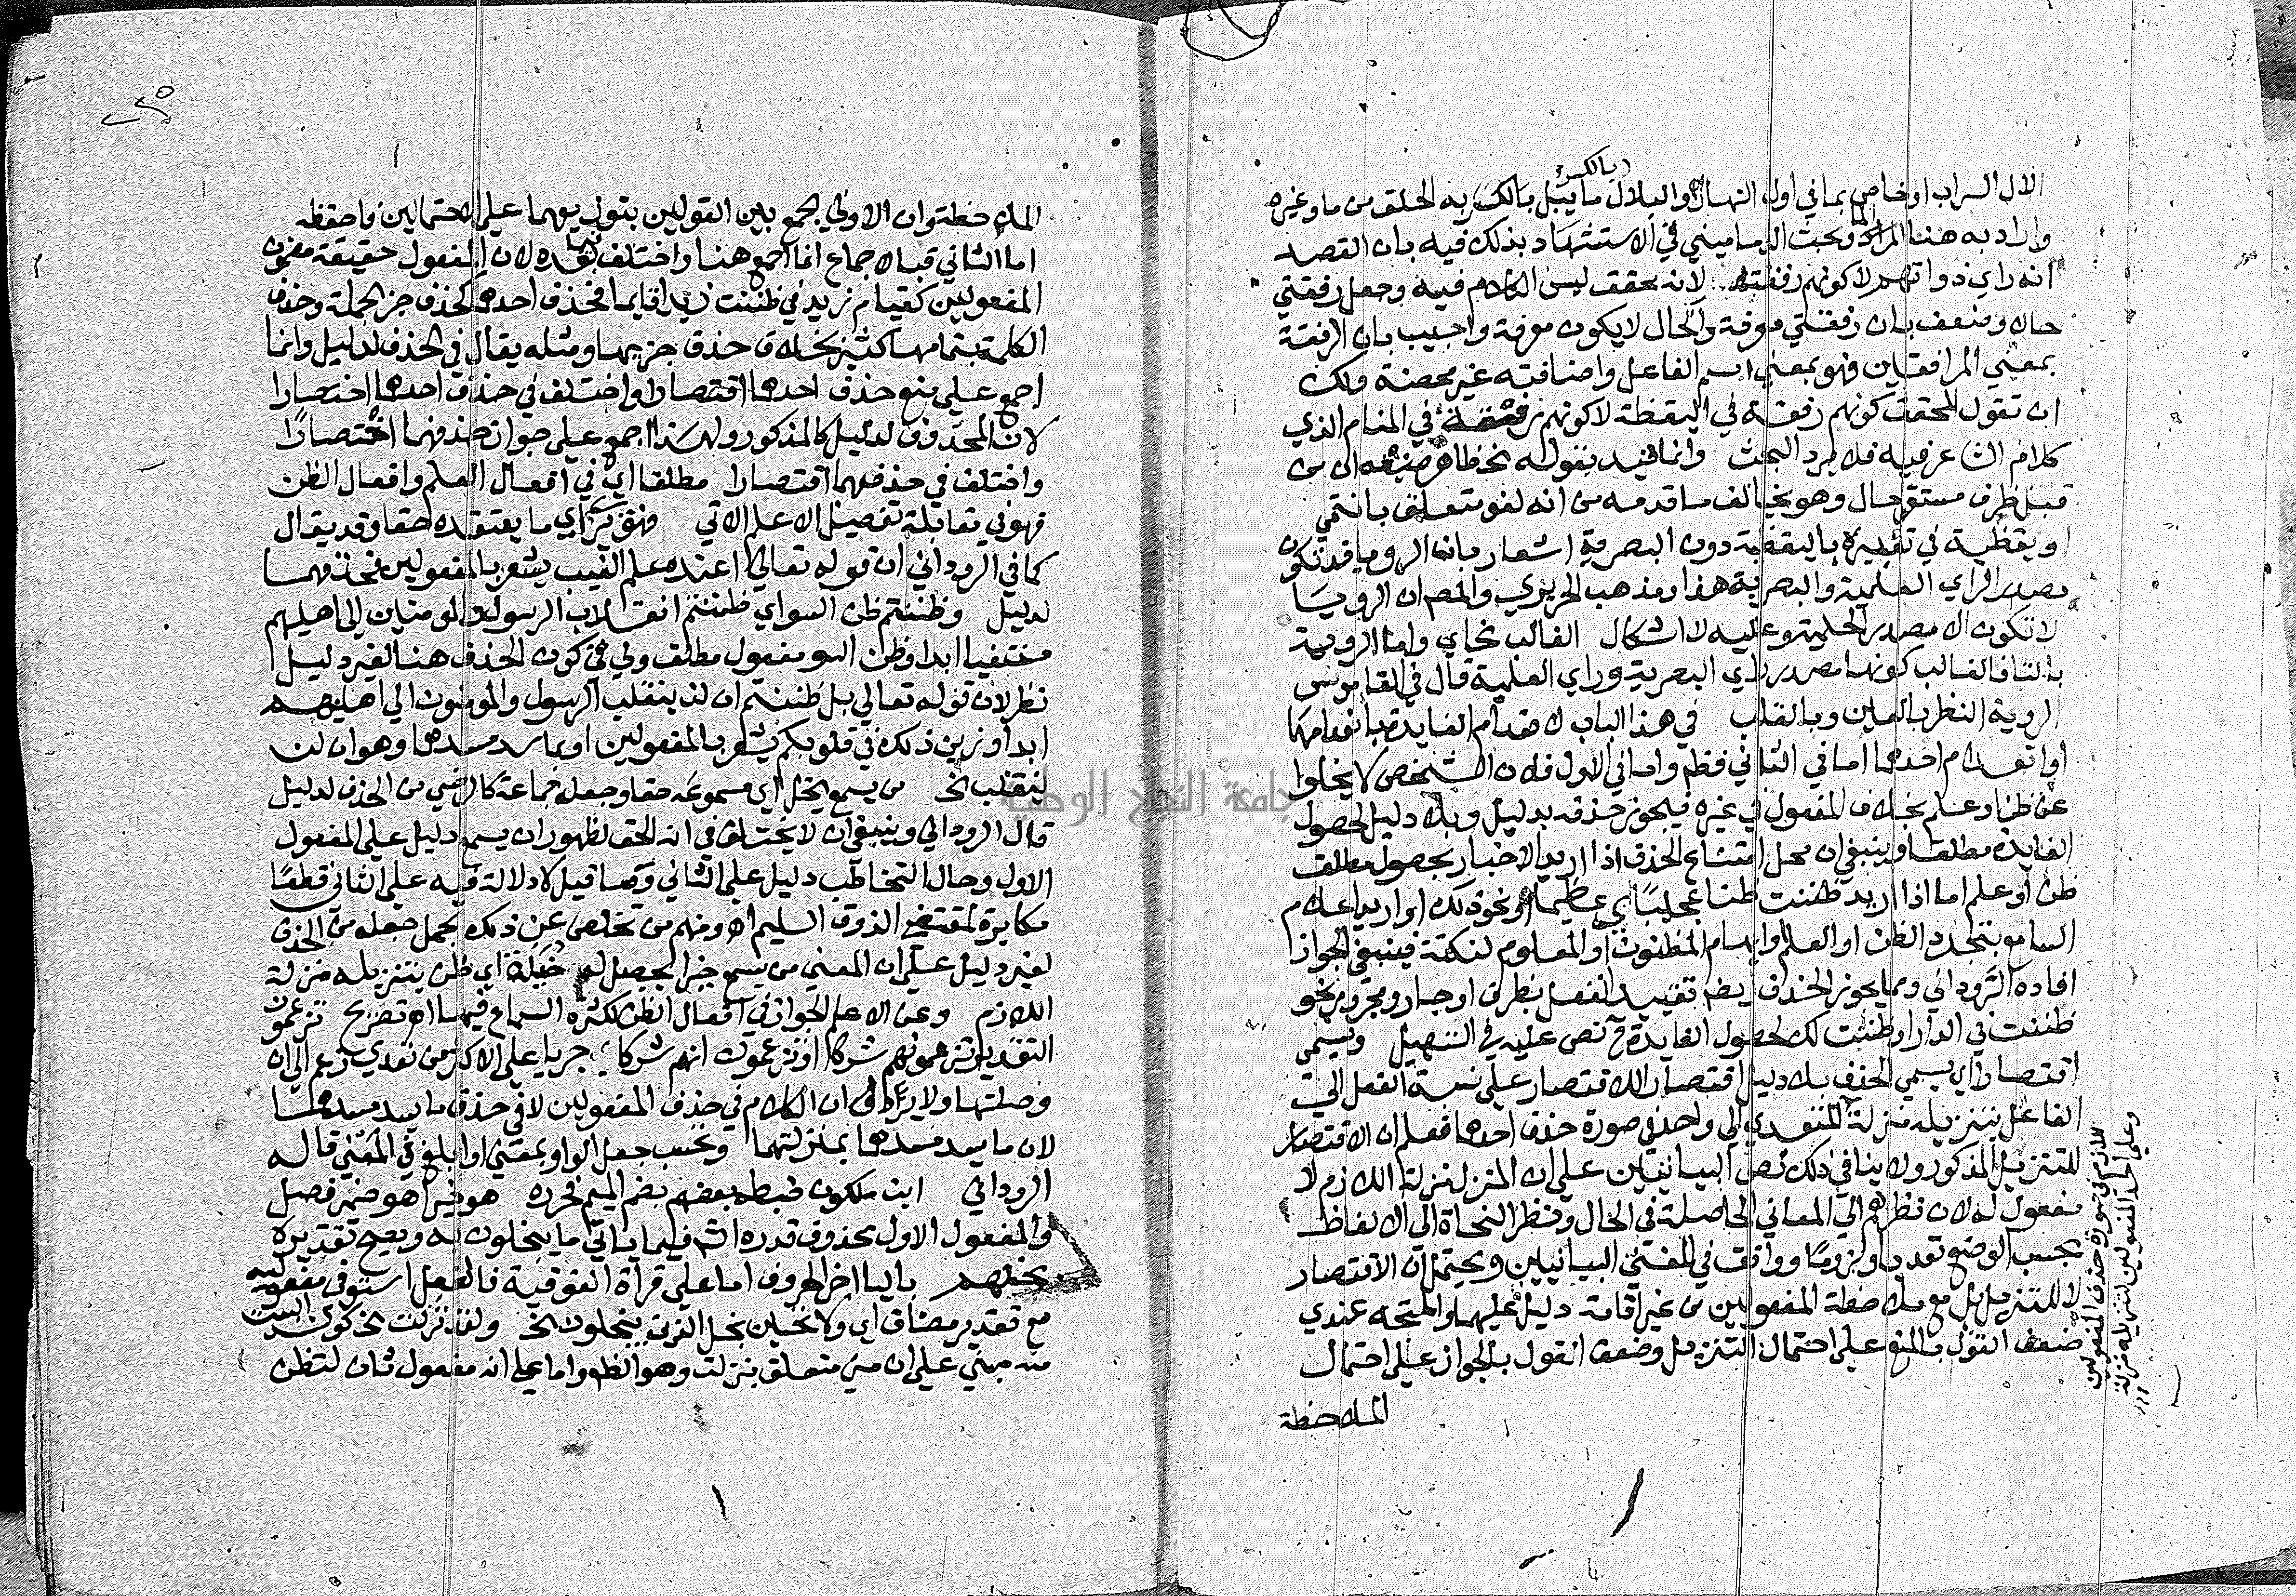 بالكسر
الال السراب او خاص بما في اول النهار والبلال ما يبل بالكسر به الحلق من ماء وغيره
واراد به هنا الماء وبحث الدماميني في الاستشهاد بذلك فيه بان القصد
انه راي ذواتهم لا كونهم رفقته لانه محقق ليس الكلام فيه وجعل رفقتي
حالا وضعف بان رفقتي معرفة والحال لا يكون معرفة واجيب بان الرفقة
بمعني المرافقين فهو بمعني اسم الفاعل واضافته غير محضة ولك
ان تقول المحقق كونهم رفقة في اليقظة لا كونهم رفقة في المنام الذي
كلام الشاعر فيه فلا يرد البحث وانما قيد بقوله
قبل ظرف مستقر حال وهو يخالف ما قدمه من انه لغو متعلق بانتمي
او يقظية في تعبيره باليقظية دون البصرية اشعار بان الرويا قد تكون
مصدر الراي العلمية والبصرية هذا ومذهب الحريري والمص ان الرويا
لا تكون الا مصدر الحلمية وعليه لا اشكال الغالب نحاي واما الروية
بالتا فالغالب كونها مصدر راي البصرية وراي العلمية قال في القاموس
الروية النظر بالعين وبالقلب في هذا الباب لانعدام الفايدة بانعدامهما
او انعدام احدهما اما في الثاني فظ واما في الاول فلان الشخص لا يخلوا
عن ظن او علم بخلاف المفعول في غيره فيجوز حذفه بدليل وبلا دليل لحصول
الفايدة مطلقا وينبغي ان محل امتناع الحذف اذا اريد الاخبار بحصول مطلق
ظن او علم اما اذا اريد ظننت ظنا عجيبا او عظيما او نحو ذلك او اريد اعلام
السامع بتجدد الظن او العلم او ابهام المظنون او المعلوم لنكتة فينبغي الجواز
افاده الروداني ومما يجوز الحذف ايضا تقييد الفعل بظرف او جار ومجرور نحو
ظننت في الدار او ظننت لك لحصول الفايدة ح نص عليه في التسهيل ويسمي
اقتصارا اي يسمي الحذف بلا دليل اقتصارا للاقتصار علي نسبة الفعل الي
الفاعل بتنزيله منزلة المتعدي الي واحد في صورة حذف احدهما فعلم ان الاقتصار
للتنزيل المذكور ولا ينافي ذلك نص البيانيين علي ان المنزل منزلة اللازم لا
مفعول له لان نظرهم الي المعاني الحاصلة في الحال ونظر النحاة الي الالفاظ
بحسب الوضع تعديا ولزوما ووافق في المغني البيانيين ويحتمل ان الاقتصار
لا للتنزيل بل مع ملاحظة المفعولين من غير اقامة دليل عليهما والمتجه عندي
ضعف القول بالمنع علي احتمال التنزيل وضعف القول بالجواز علي احتمال
الملاحظة
اللازم في صورة حذف المفعولين
وعلي احد المفعولين لتنزيله منزلة
الملاحظة وان الاولي الجمع بين القولين بتوزيعهما علي الاحتمالين فاحفظه
اما الثاني فبالاجماع انما اجمع هنا واختلف فيما بعده لان المفعول حقيقة مضمون
المفعولين كقيام زيد في ظننت زيدا قايما فحذف احدهما كحذف جز الجملة وحذف
الكلمة بتمامها كثير بخلاف حذف جزيها ومثله يقال في الحذف لدليل وانما
اجمع علي منع حذف احدهما اقتصارا واختلف في حذف احدهما اختصارا
لان المحذوف لدليل كالمذكور ولهذا اجمع علي جواز حذفهما اختصارا
واختلف في حذفهما اقتصارا مطلقا اي في افعال العلم وافعال الظن
فهو في مقابلة تفصيل الاعلم الاتي فهو يري اي ما يعتقده حقا وقد يقال
كما في الروداني ان قوله تعالي اعنده علم الغيب يشعر بالمفعولين فحذفهما
لدليل وظننتم ظن السو اي ظننتم انقلاب الرسول والمومنين الي اهليهم
منتفيا ابدا وظن السو مفعول مطلق وفي كون الحذف هنا لغير دليل
نظر لان قوله تعالي بل ظننتم ان لن ينقلب الرسول والمومنون الي اهليهم
ابدا وزين ذلك في قلوبكم يشعر بالمفعولين او بما يسد مسدهما وهو ان لن
ينقلب الخ من يسمع يخل اي مسموعه حقا وجعله جماعة كالرضي من الحذف لدليل
قال الروداني وينبغي ان لا يختلف في انه الحق لظهور ان يسمع دليل علي المفعول
الاول وحال التخاطب دليل علي الثاني وما قيل لا دلالة فيه علي الثاني قطعا
مكابرة لمقتضي الذوق السليم اه ومنهم من تخلص عن ذلك بحمل جعله من الحذف
لغير دليل علي ان المعني من يسمع خبرا يحصل له خيلة اي ظن بتنزيله منزلة
اللازم وعن الاعلم الجواز في افعال الظن لكثرة السماع فيها اه تصريح تزعمون
التقدير تزعمونهم شركا او تزعمون انهم شركا جريا علي الاكثر من تعدي زعم الي ان
وصلتها ولا يرد ان الكلام في حذف المفعولين لا في حذف ما يسد مسدهما
لان ما يسد مسدهما بمنزلتهما وتحسب جعل الواو بمعني او ابلغ في المعني قاله
الروداني ابن ملكون ضبطه بعضهم بضم الميم فحرره هو خيرا هو ضمير فصل
والمفعول الاول محذوف قدره الش فيما ياتي ما يبخلون به ويصح تقديره
بخلهم باليا اخر الحروف اما علي قراة الفوقية فالفعل استوفي مفعوليه
مع تقدير مضاف اي ولا تحسبن بخل الذين يبخلون الخ ولقد نزلت الخ كون البيت
منه مبني علي ان مني متعلق بنزلت وهو الظاهر واما علي انه مفعول ثان لتظن
جامعة النجاح الوطنية